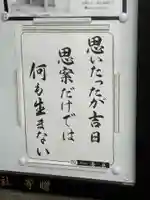 思いたったが吉日
思案だけでは
何も生まない